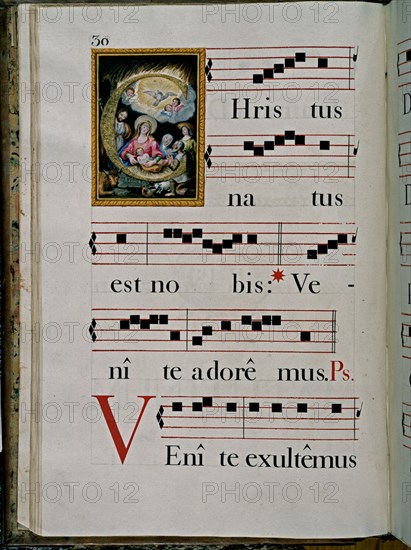 30
CHris tus
na tus
est no bis: * Ve -
nî te adorê mus. Ps.
VEnî te exultêmus
PHOTO 12